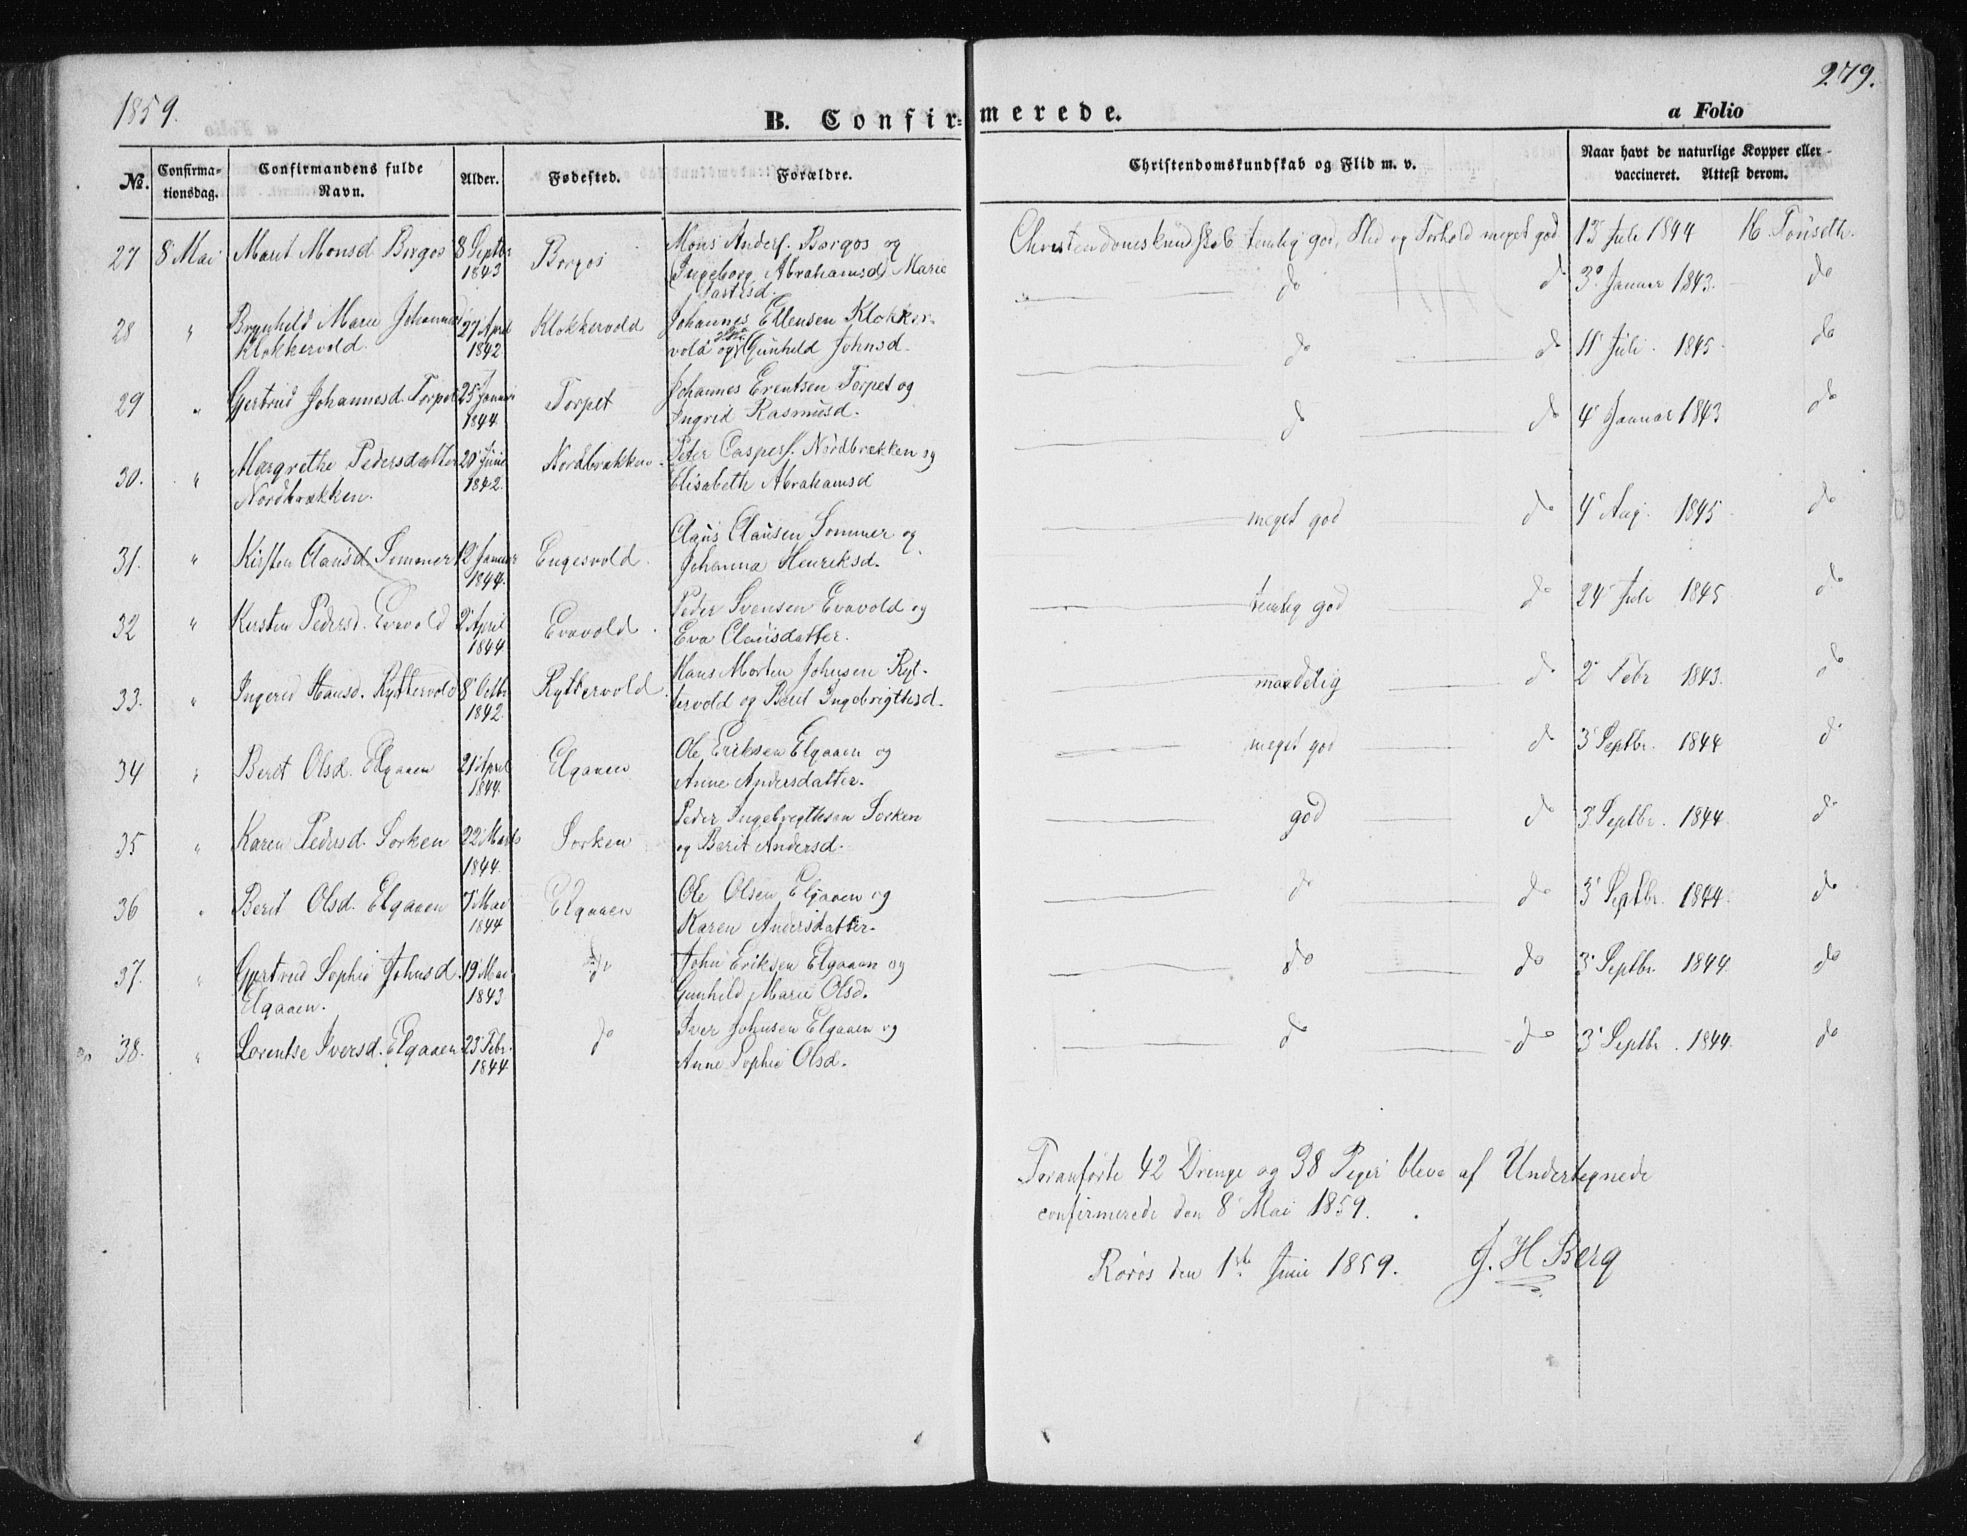 1859.
279.
B. Confirmerede.
a Folio
No.
Confirmationsdag.
Confirmandens fulde Navn.
Alder.
Fødested.
Forældre.
Christendomskundskab og Flid m. v.
Naar havt de naturlige Kopper eller vaccineret. Attest derom.
27 8 Mai Marit Monsd Borgos 8 Septbr 1843 Borgos Mons Anders. Borgos og Ingeborg Abrahamsd Marie Christendomskundskab temlig god, Flid og Forhold meget god 13 Juli 1844
28 " Brynhild Marie Johannesd Klokkervold. 27 April 1842 Klokkervold Johannes Ellensen Klokkervold og Gunhild Johnsd. do do 3 Januar 1843. do
29 " Gertrud Johannesd. Torpet 25 Januar 1844 Torpet Johannes Erentsen Torpet og Ingrid Rasmusd. do do 11 Juli 1845 do
30. " Margrethe Pedersdatter Nordbrækken. 20 Juni 1842. Nordbrækken Peter Caspers. Nordbrækken og Elisabeth Abrahamsd do do 4 Januar 1843 do
31. " Kirsten Clausd. Sommer 12 Januar 1844. Engesvold Claus Clausen Sommer og Johanna Henriksd. meget god do 4 Aug. 1845 do
32 " Kirsten Pedersd. Evavold 2 April 1844 Evavold Peder Svensen Evavold og Eva Clausdatter. temlig god do 24 Juli 1845 do
33. " Ingerid Hansd. Ryttervold 8 Octbr 1842. Ryttervold Hans Morten Johnsen Ryttervold og Berit Ingebrigtsd. maadelig do 2 Febr 1843. do
34 " Berit Olsd. Elgaaen 21 April 1844. Elgaaen Ole Eriksen Elgaaen og Anne Andersdatter. meget god do 3 Septbr. 1844 do
35 " Karen Pedersd. Sorken 22 Marts 1844 Sorken Peder Ingebrigtsen Sorken og Berit Andersd. god do 3 Septbr. 1844. do
36 " Berit Olsd. Elgaaen 7 Mai 1844 Elgaaen Ole Olsen Elgaaen og Karen Andersdatter. do do 3 Septbr. 1844. do
37. " Gjertrud Sophie Johnsd. Elgaaen. 19 Mai 1843 do John Eriksen Elgaaen og Gunhild Marie Olsd. do do 3 Septbr. 1844. do
38. " Lorentse Iversd. Elgaaen 23 Febr. 1844 do Iver Johnsen Elgaaen og Anne Sophie Olsd. do do 3 Septbr. 1844. do
Foranførte 42 Drenge og 38 Piger bleve af Undertegnede
confirmerede den 8 Mai 1859.
Røros den 1ste Juni 1859. J. H Berg